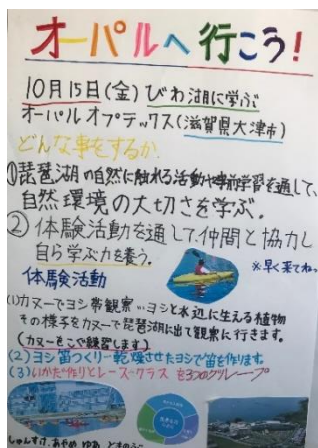 オーパルへ行こう！
10月15日(金)びわ湖に学ぶ
オーパルオプテックス(滋賀県大津市)
どんな事をするか
①琵琶湖の自然に触れる活動や事前学習を通して、
自然環境の大切さを学ぶ。
②体験活動を通して、仲間と協力し
自ら学ぶ力を養う。
※早く来てねっ
体験活動
(1)カヌーでヨシ帯観察…ヨシと水辺に生える植物
その様子をカヌーで琵琶湖に出て観察に行きます。
(カヌーをこぐ練習します)
(2)ヨシ笛つくり…乾燥させたヨシで笛を作ります
(3)いかだ作りとレース…クラスを3つのグループ
しゅんすけ、あやめ ゆあ